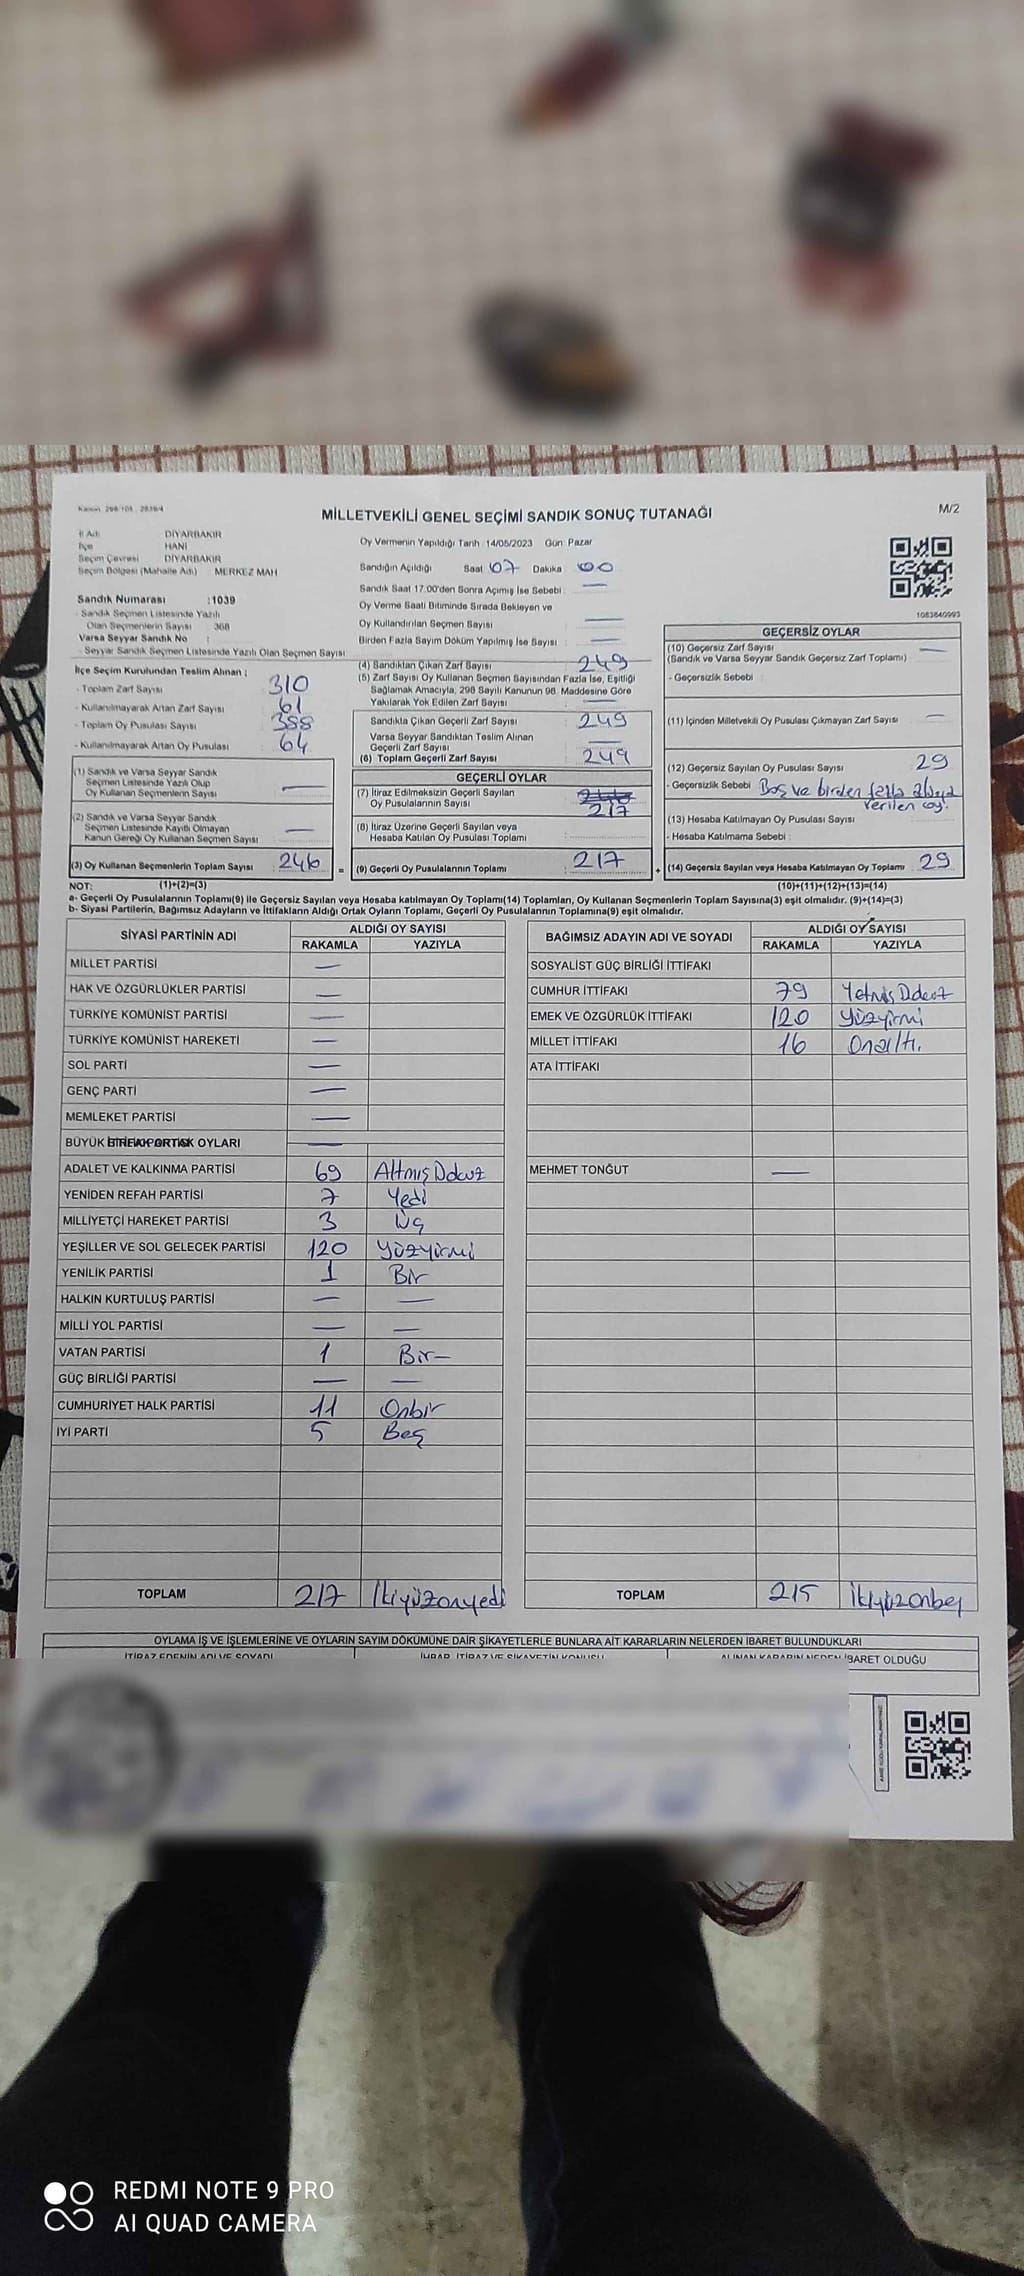 Kanun: 298/105 , 2839/4
MİLLETVEKİLİ GENEL SEÇİMİ SANDIK SONUÇ TUTANAĞI
M/2
İl Adı DİYARBAKIR
İlçe HANİ
Seçim Çevresi DİYARBAKIR
Seçim Bölgesi (Mahalle Adı) MERKEZ MAH
Sandık Numarası :1039
- Sandık Seçmen Listesinde Yazılı
Olan Seçmenlerin Sayısı 368
Varsa Seyyar Sandık No :
- Seyyar Sandık Seçmen Listesinde Yazılı Olan Seçmen Sayısı:
Oy Vermenin Yapıldığı Tarih :14/05/2023 Gün: Pazar
Sandığın Açıldığı Saat 07 Dakika 00
Sandık Saat 17.00'den Sonra Açımış İse Sebebi : —
Oy Verme Saati Bitiminde Sırada Bekleyen ve
Oy Kullandırılan Seçmen Sayısı : —
Birden Fazla Sayım Döküm Yapılmış İse Sayısı : —
1083840993
İlçe Seçim Kurulundan Teslim Alınan ;
- Toplam Zarf Sayısı 310
- Kullanılmayarak Artan Zarf Sayısı 61
- Toplam Oy Pusulası Sayısı 388
- Kullanılmayarak Artan Oy Pusulası 64
(1) Sandık ve Varsa Seyyar Sandık
Seçmen Listesinde Yazılı Olup
Oy Kullanan Seçmenlerin Sayısı —
(2) Sandık ve Varsa Seyyar Sandık
Seçmen Listesinde Kayıtlı Olmayan
Kanun Gereği Oy Kullanan Seçmen Sayısı —
(3) Oy Kullanan Seçmenlerin Toplam Sayısı 246 =
(4) Sandıktan Çıkan Zarf Sayısı : 249
(5) Zarf Sayısı Oy Kullanan Seçmen Sayısından Fazla İse, Eşitliği
Sağlamak Amacıyla, 298 Sayılı Kanunun 98. Maddesine Göre
Yakılarak Yok Edilen Zarf Sayısı : —
Sandıkta Çıkan Geçerli Zarf Sayısı : 249
Varsa Seyyar Sandıktan Teslim Alınan
Geçerli Zarf Sayısı : —
(6) Toplam Geçerli Zarf Sayısı : 249
GEÇERLİ OYLAR
(7) İtiraz Edilmeksizin Geçerli Sayılan
Oy Pusulalarının Sayısı : 217
(8) İtiraz Üzerine Geçerli Sayılan veya
Hesaba Katılan Oy Pusulası Toplamı
(9) Geçerli Oy Pusulalarının Toplamı : 217 +
GEÇERSİZ OYLAR
(10) Geçersiz Zarf Sayısı : —
(Sandık ve Varsa Seyyar Sandık Geçersiz Zarf Toplamı)
- Geçersizlik Sebebi :
(11) İçinden Milletvekili Oy Pusulası Çıkmayan Zarf Sayısı : —
(12) Geçersiz Sayılan Oy Pusulası Sayısı : 29
- Geçersizlik Sebebi : Boş ve birden fazla alaya
verilen oy.
(13) Hesaba Katılmayan Oy Pusulası Sayısı :
- Hesaba Katılmama Sebebi :
(14) Geçersiz Sayılan veya Hesaba Katılmayan Oy Toplamı : 29
NOT: (1)+(2)=(3) (10)+(11)+(12)+(13)=(14)
a- Geçerli Oy Pusulalarının Toplamı(9) ile Geçersiz Sayılan veya Hesaba katılmayan Oy Toplamı(14) Toplamları, Oy Kullanan Seçmenlerin Toplam Sayısına(3) eşit olmalıdır. (9)+(14)=(3)
b- Siyasi Partilerin, Bağımsız Adayların ve İttifakların Aldığı Ortak Oyların Toplamı, Geçerli Oy Pusulalarının Toplamına(9) eşit olmalıdır.
SİYASİ PARTİNİN ADI ALDIĞI OY SAYISI
RAKAMLA YAZIYLA
MİLLET PARTİSİ —
HAK VE ÖZGÜRLÜKLER PARTİSİ —
TÜRKİYE KOMÜNİST PARTİSİ —
TÜRKİYE KOMÜNİST HAREKETİ —
SOL PARTİ —
GENÇ PARTİ —
MEMLEKET PARTİSİ —
BÜYÜK OYLARI —
ADALET VE KALKINMA PARTİSİ 69 Altmış Dokuz
YENİDEN REFAH PARTİSİ 7 Yedi
MİLLİYETÇİ HAREKET PARTİSİ 3 Üç
YEŞİLLER VE SOL GELECEK PARTİSİ 120 Yüzyirmi
YENİLİK PARTİSİ 1 Bir
HALKIN KURTULUŞ PARTİSİ — —
MİLLİ YOL PARTİSİ — —
VATAN PARTİSİ 1 Bir—
GÜÇ BİRLİĞİ PARTİSİ — —
CUMHURİYET HALK PARTİSİ 11 Onbir
İYİ PARTİ 5 Beş
TOPLAM 217 İkiyüzonyedi
BAĞIMSIZ ADAYIN ADI VE SOYADI ALDIĞI OY SAYISI
RAKAMLA YAZIYLA
SOSYALİST GÜÇ BİRLİĞİ İTTİFAKI
CUMHUR İTTİFAKI 79 Yetmiş Dokuz
EMEK VE ÖZGÜRLÜK İTTİFAKI 120 Yüzyirmi
MİLLET İTTİFAKI 16 Onaltı.
ATA İTTİFAKI
MEHMET TONĞUT —
TOPLAM 215 İkiyüzonbeş
OYLAMA İŞ VE İŞLEMLERİNE VE OYLARIN SAYIM DÖKÜMÜNE DAİR ŞİKAYETLERLE BUNLARA AİT KARARLARIN NELERDEN İBARET BULUNDUKLARI
İTİRAZ EDENİN ADI VE SOYADI İHBAR, İTİRAZ VE ŞİKAYETİN KONUSU ALINAN KARARIN NEDEN İBARET OLDUĞU
REDMI NOTE 9 PRO
AI QUAD CAMERA